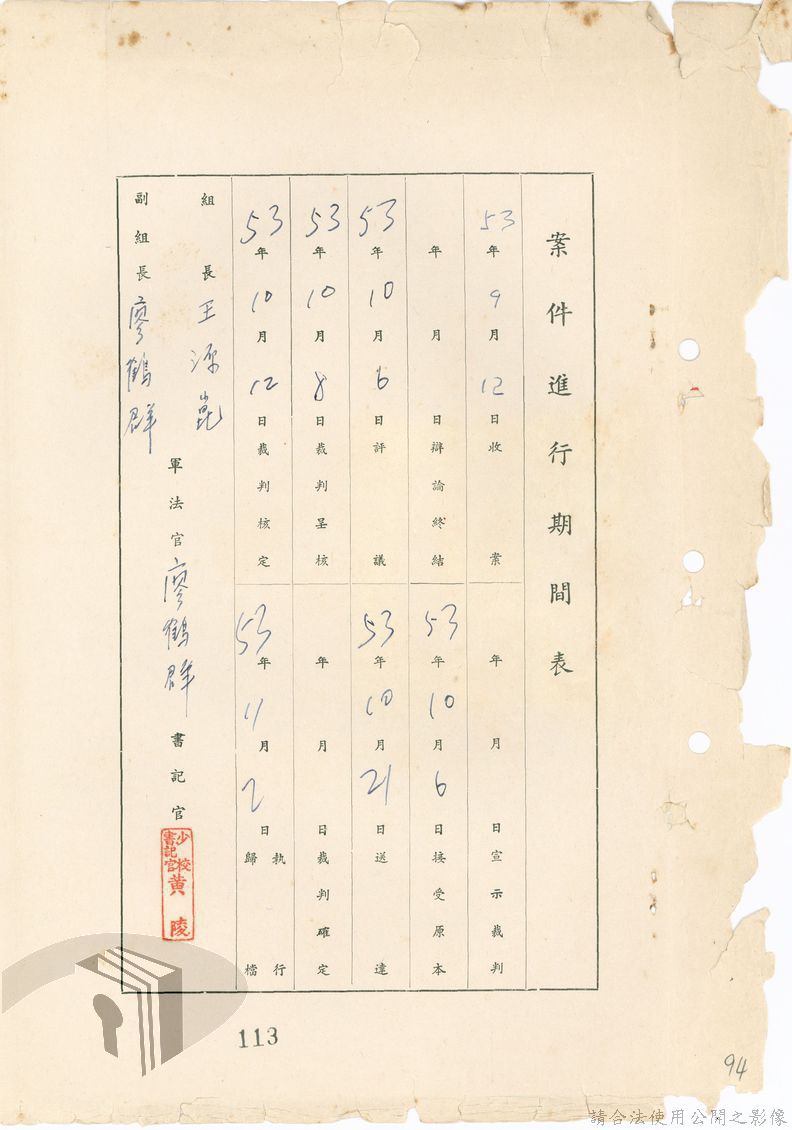 案件進行期間表
53年9月12日收案
年月日辯論終結
53年10月6日評議
53年10月8日裁判呈核
53年10月12日裁判核定
年月日宣示裁判
53年10月6日接受原本
53年10月21日送達
年月日裁判確定
53年11月2日執行歸檔
組長 王源崑
副組長 廖鶴群
軍法官 廖鶴群
書記官
少校
書記官
黃陵
113
94
請合法使用公開之影像